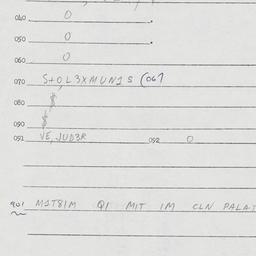 040 0
050 0
060 0
070 S+O,L3XMUN1S (067
080 $
090 $
091 VE,JUD3R 092 0
901 M1T8IM QI MIT IM CLN PALAT